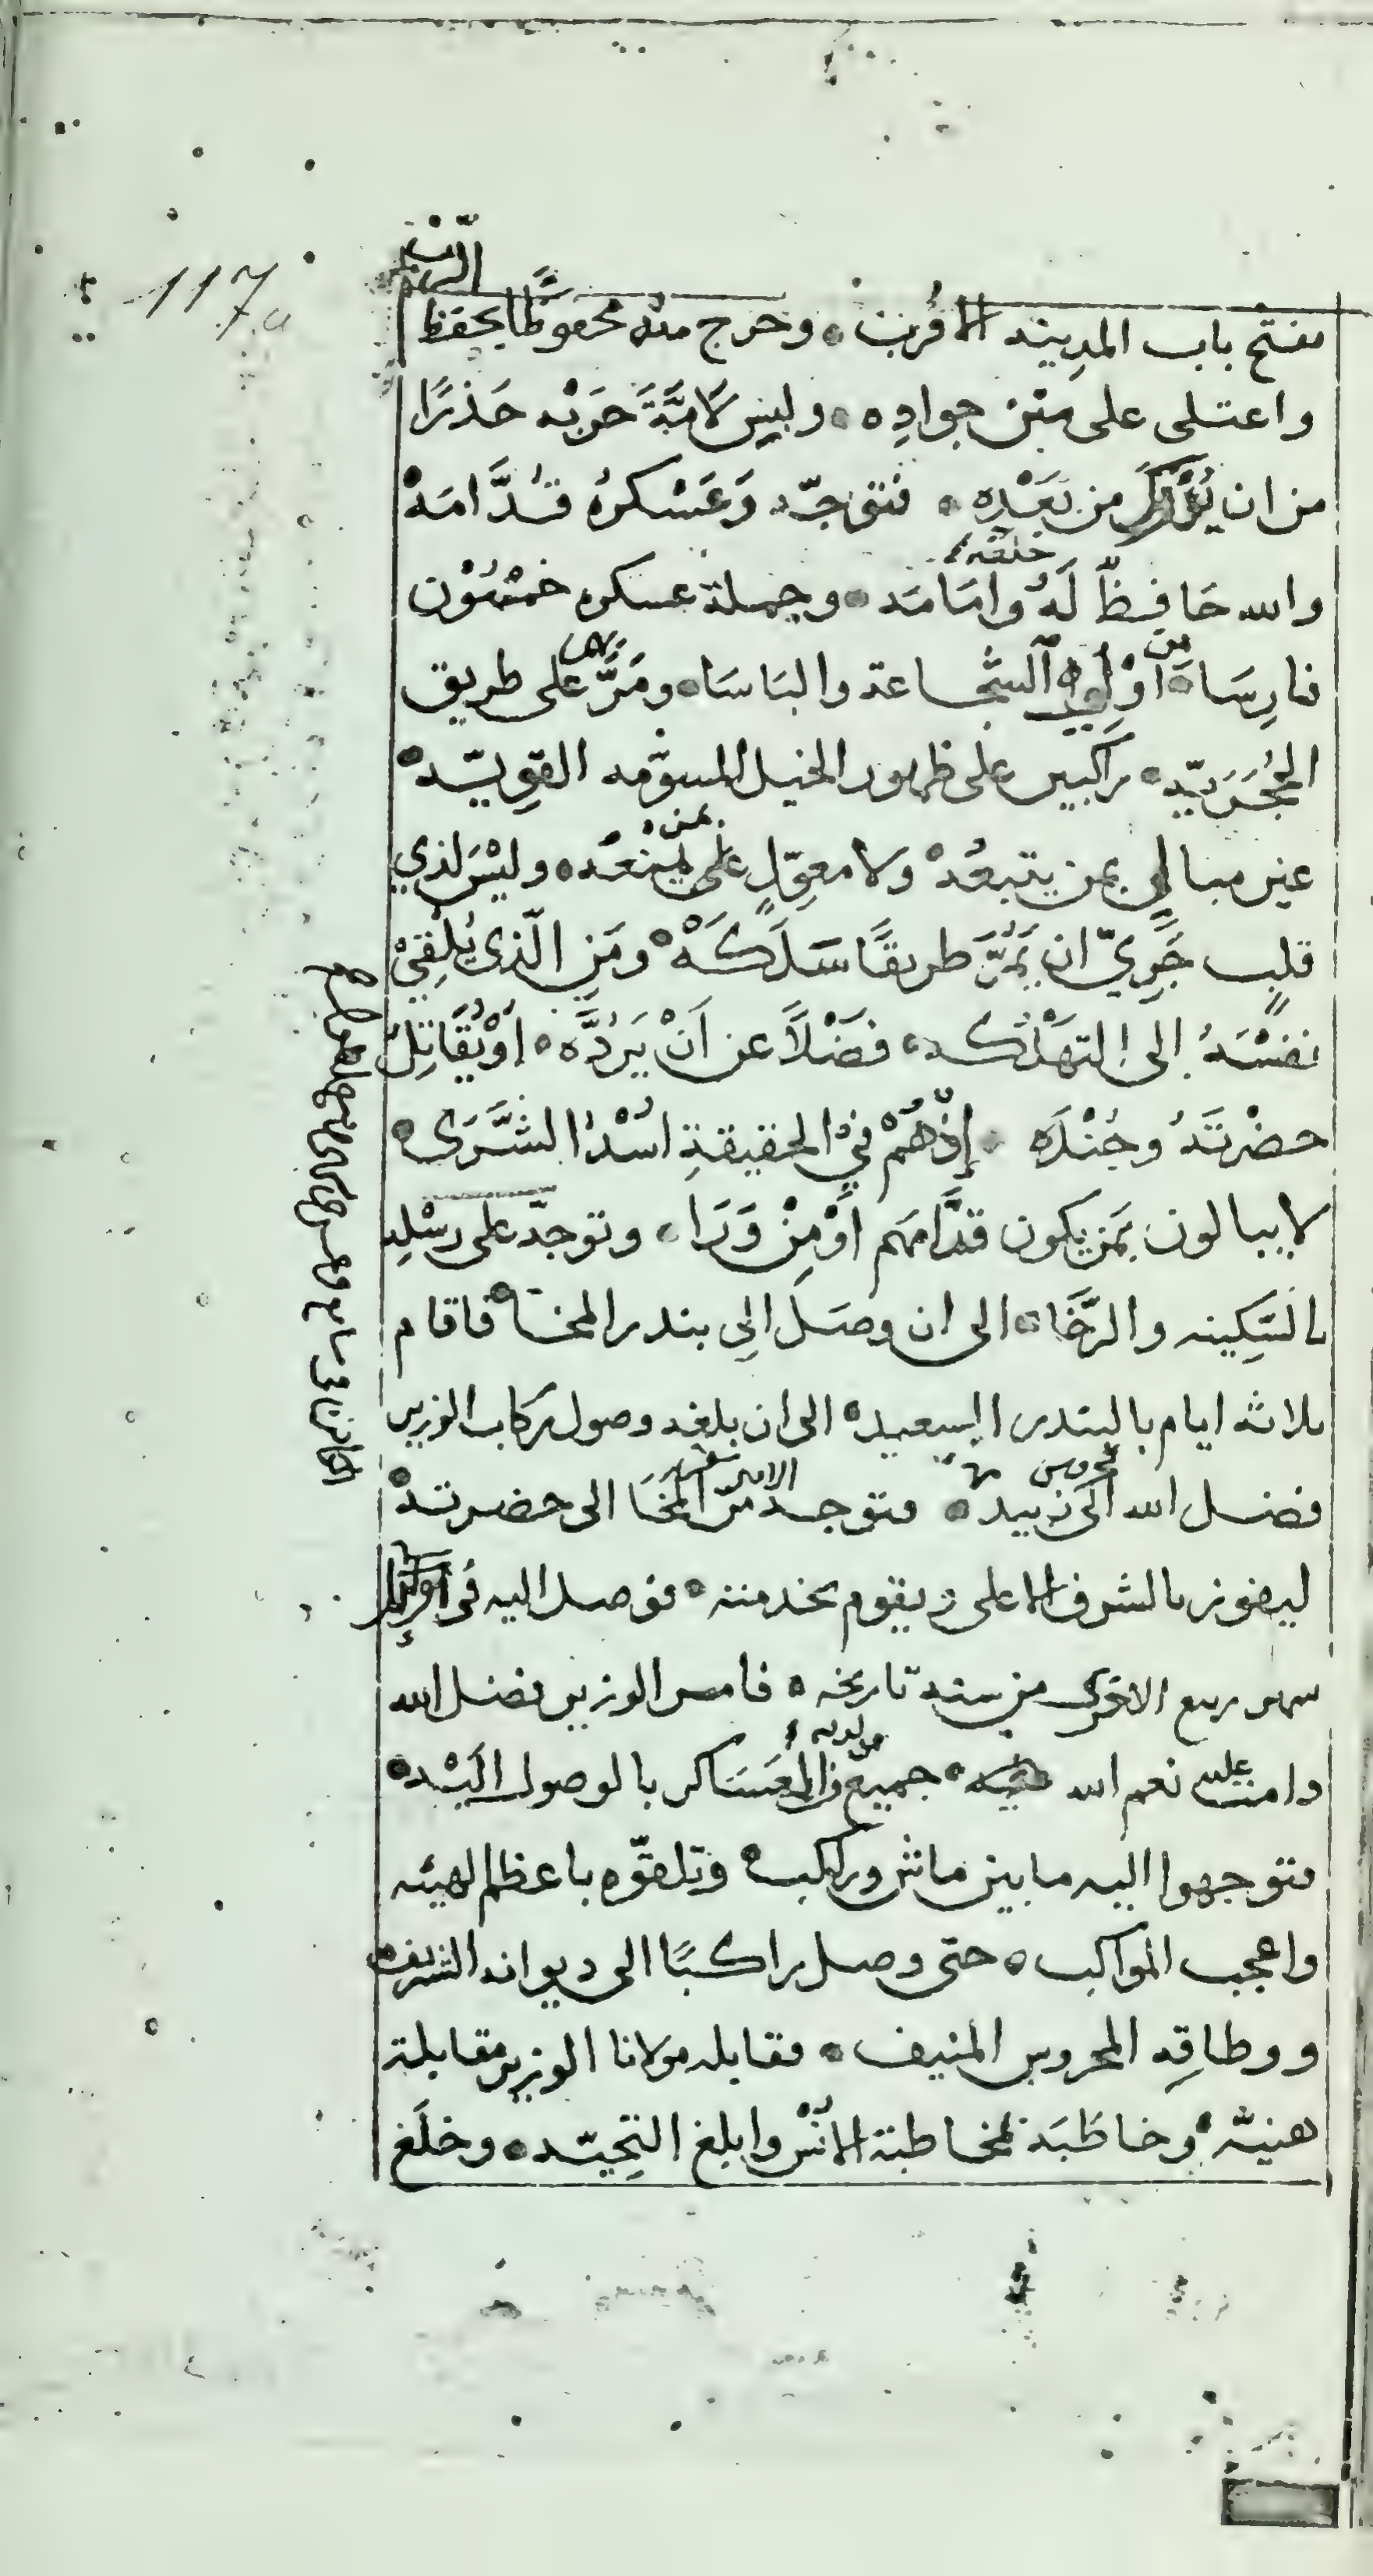 117a
ففتح باب المدينه الاقرب ه وخرج منه محفوظًا بحفظ الرب
واعتلى على متن جواده ه ولبس لَامَّةَ حَرْبه حَذرًا
من ان من بَعْدِه ه فتوجّه وَعَسْكره قُدَّامَهْ
والله حَافِظٌ لَهُ خلفه وامَامَه ه وجملة عسكره خمسُوْن
فارِسَا ه من اوْلى الشجاعة والبَاسَا ه ومَرَّ على طريق
الحُجَرَيّه ه راكبين على ظهور الخيل المسوّمه القوِيّه ه
غير مبالي بمن يتبعُهْ ولا معوِّلٍ على من يمنعُه ه وليْسَ لذي
قلبٍ جَرِيّ ان يَمُرَّ طريقًا سَلَكَهْ ه ومَنِ الّذي يُلْقِيْ
نفسَهُ الى التهْلُكه ه فضْلًا عن اَنْ يَرُدَّه ه اوْ يُقَاتِلَ
حضْرتَهُ وجُنْدَه ه اِذْ هُمْ فِيْ الحقيقةِ اُسْدُ الشَّرَى ه
لا يبالون بمَن يكون قدَّامهم اَوْ مِنْ وَرَا ه وتوجّه على رِسْلِه
بالسَّكِينه والرَّخَا ه الى ان وصَلَ الى بندر المخا ه فاقام
ثلاثة ايام بالبندر السعيد ه الى ان بلغه وصول ركاب الوزير
فضل الله الى محروس زبيد ه فتوجه الامير من المخَا الى حضرتهْ
ليفوز بالشرف الاعلى ويقوم بخدمته ه فوصل اليه في
شهر ربيع الاخرى من سنة تاريخه ه فامر الوزير فضل الله
دامت نعم الله عليه ه جميع من لديه من العَسَاكر بالوصول الَيْه ه
فتوجهوا اليه ما بين ماشٍ وراكب ه وتلقّوه باعظم الهيئه
واعجب المواكب ه حتى وصل راكبًا الى ديوانه الشريف ه
ووطاقِه المحروس المنيف ه فقابله مولانا الوزير مقابلة
هنيّه ه وخاطَبَه مخاطبة الاُنْس وابلغ التحِيّه ه وخلَع